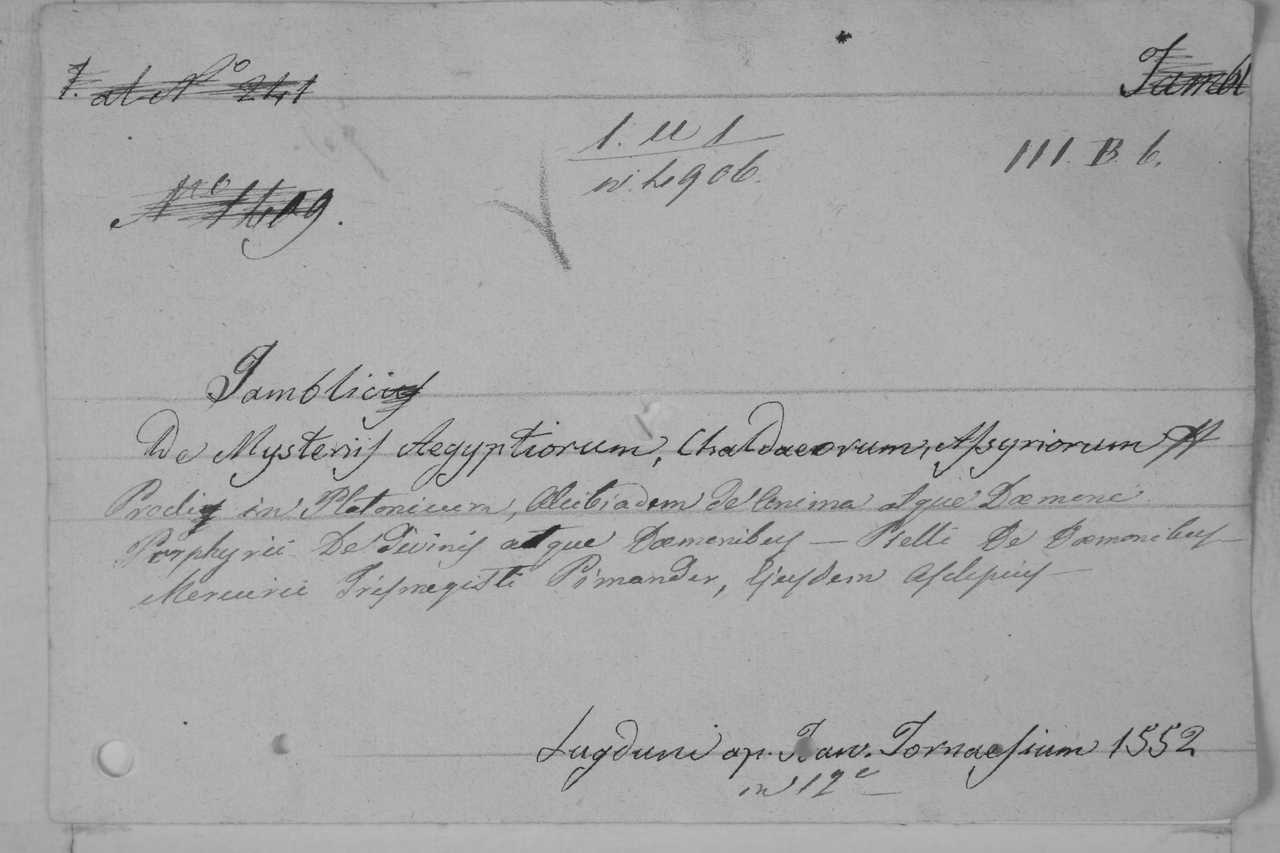 at N° 241
Jambl
1. u 1
n. 4906.
III. B. 6.
N° 1409.
Jamblicus
De Mysteriis Aegyptiorum, Chaldaeorum, Assyriorum
Procli in Platonicum, Alcibiadem de Anima atque Dæmone
Porphyrii De Divinis atque Dæmonibus — Pselli De Dæmonibus —
Mercurii Trismegisti Pimander, Ejusdem Asclepius —
Lugduni ap. Tornaesium 1552
in 12°